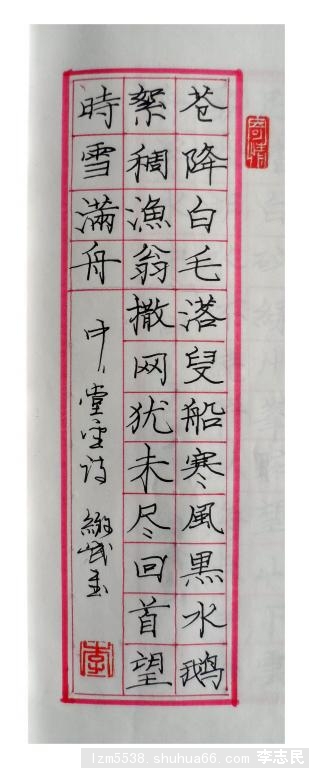 寄情
苍降白毛落叟船寒風黑水鹅
絮稠漁翁撒网犹未尽回首望
時雪滿舟
中堂 诗
李
lzm5538.shuhua66.com 李志民